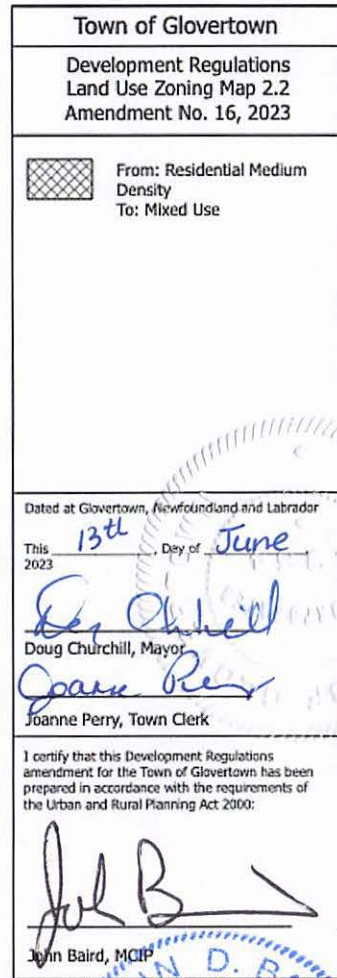 Town of Glovertown
Development Regulations
Land Use Zoning Map 2.2
Amendment No. 16, 2023
From: Residential Medium
Density
To: Mixed Use
Dated at Glovertown, Newfoundland and Labrador
This 13th, Day of June,
2023
Doug Churchill, Mayor
Joanne Perry, Town Clerk
I certify that this Development Regulations
amendment for the Town of Glovertown has been
prepared in accordance with the requirements of
the Urban and Rural Planning Act 2000:
John Baird, MCIP